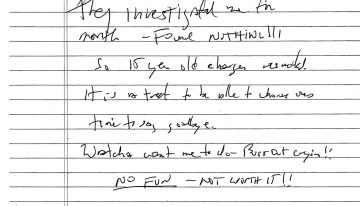 They investigated me for
month - Found NOTHING!!!
So 15 year old charges recanted.
It is a treat to be able to choose ones
time to say goodbye.
Watcha want me to do - Burst out crying!!
NO FUN - NOT WORTH IT!!